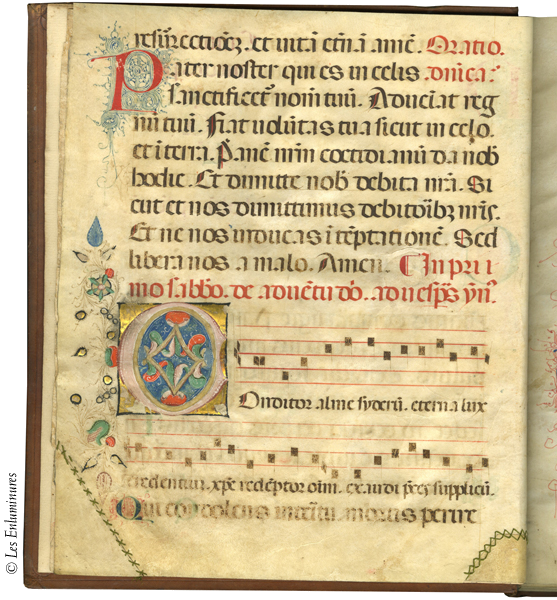 resurrectiōēz. et vitā etn̄ā amē. Oratio.
Pater noster qui es in celis .dn̄ica:
sanctificet᷑ nom̄ tuū. Adueniat reg
nū tuū. Fiat uolūtas tua sicut in celo.
et ī terra. Panē nr̄m cottidianū da nob̄
hodie. Et dimitte nob̄ debita nr̄a. Si
cut et nos dimittimus debitorībz nr̄is.
Et ne nos inducas ī tēptationē. Sed
libera nos a malo. Amen. In pri
mo sabbo. de aduentu dn̄i. ad uesp̄s ymn̄.
Conditor alme syderū. eterna lux
credentiū. xp̄e redēptor oīm. exaudi p̄ces supplicū.
Qui condolens interitu mortis perire
© Les Enluminures